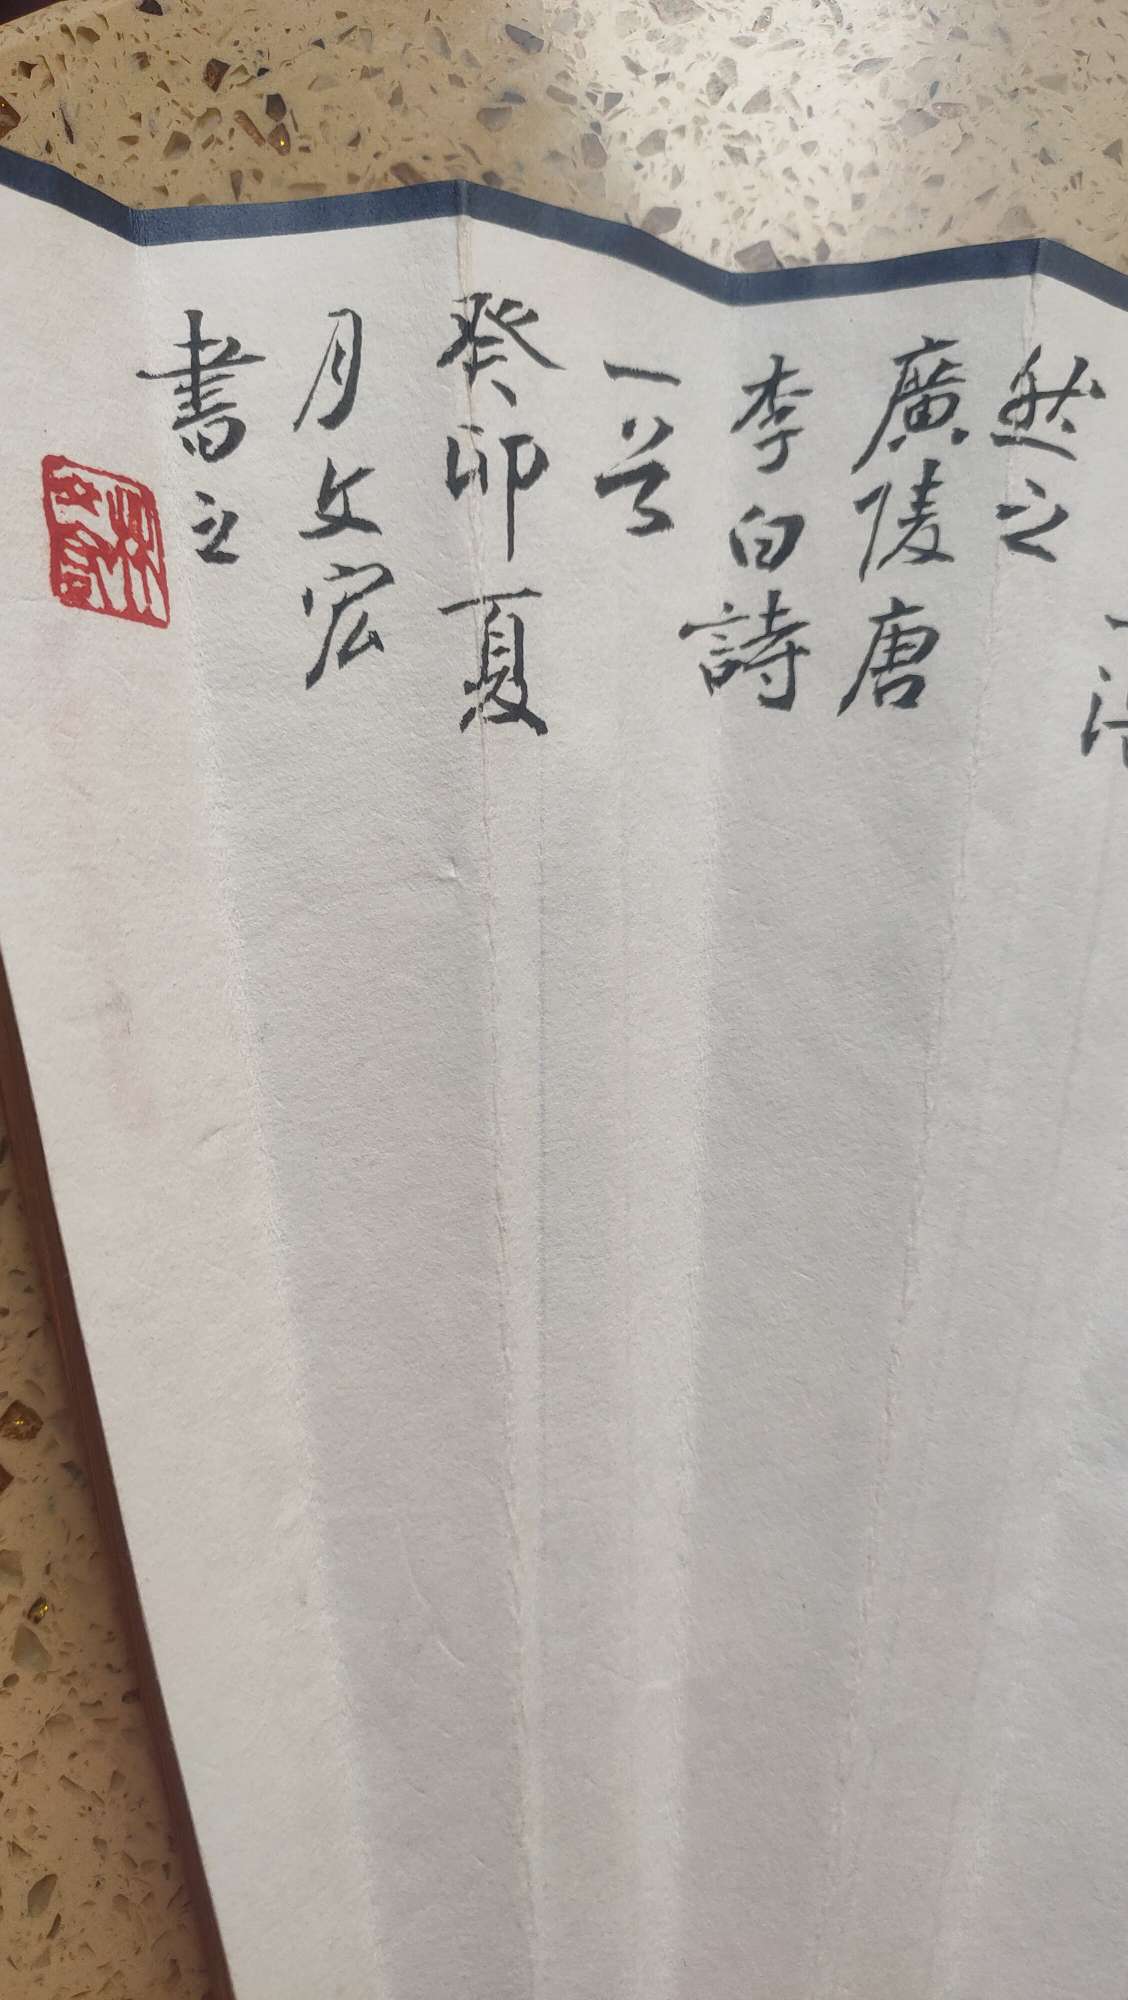 然之
廣陵唐
李白詩
一首
癸卯夏
月文宏
書之